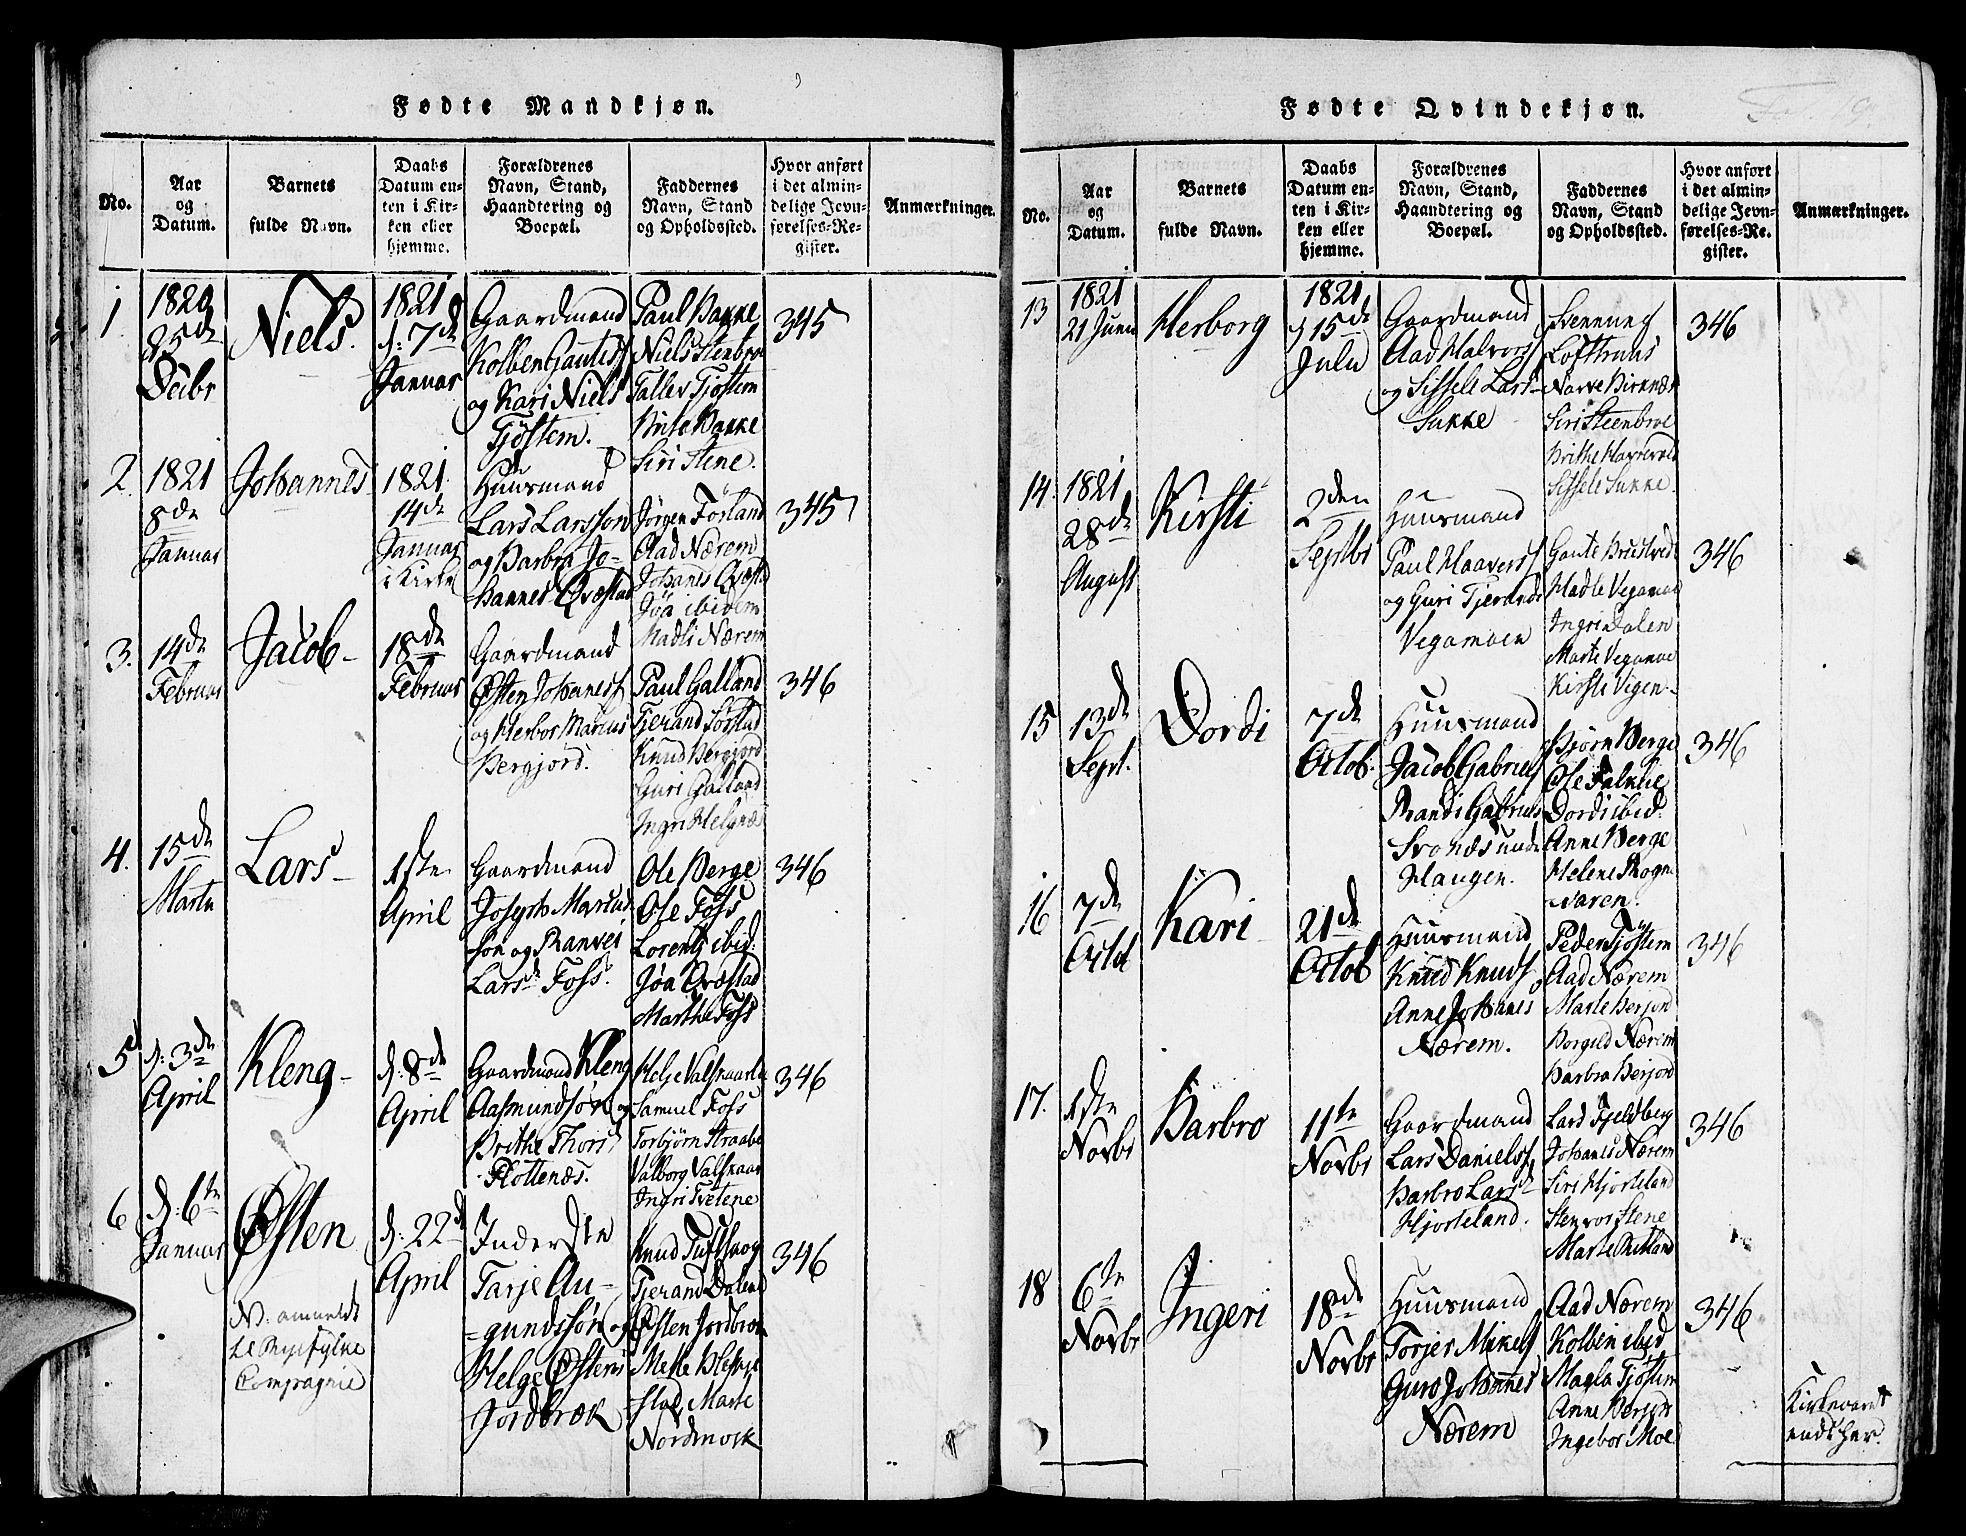 Fødte Mandkjøn.
No.
Aar
og
Datum.
Barnets
fulde Navn.
Daabs
Datum en-
ten i Kir-
ken eller
hjemme.
Forældrenes
Navn, Stand,
Haandtering og
Boepæl.
Faddernes
Navn, Stand
og Opholdssted.
Hvor anført
i det almin-
delige Jevn-
førelses-Re-
gister.
Anmærkninger.
1
1820
25de
Decbr
Niels.
1821
d: 7de
Januar
Gaardmand
Kolben Gautess
og Kari Niels
Tjøstem.
Paul Bakke
Niels Stenbroe
Tallev Tjøstem
Brite Bakke
Siri Stene.
345
2.
1821
8de
Januar
Johannes
1821
14de
Januar
i Kirke
Huusmand
Lars Larsson
og Barbra Jo-
hannes Qvæstad
Jørgen Førland
Aad Nærem
Johanes Qvæstad
Jøa ibidem
Madli Nærem
345
3.
14de
Februar
Jacob
18de
Februar
Gaardmand
Østen Johaness
og Herbor Marius
Bergjord.
Paul Galland
Tjerand Sørstad
Knud Bergjord
Guri Galland
Ingri Helgnæs
346
4.
15de
Martii
Lars
1ste
April
Gaardmand
Joseph Marcus
søn og Ranvei
Larsd Foss.
Ole Berge
Ole Foss
Lorentz ibid:
Jøa Qvæstad
Marthe Foss
346
5
d: 3de
April
Kleng
d: 8de
April
Gaardmand Kleng
Aasmundsøn og
Brithe Thoris
Flottenæs.
Helje Valskaar
Samuel Foss
Torbjørn Straabe
Valborg Valskaar
Ingri Tvetene
346
6
d: 6te
Januar
Østen
d: 22d
April
Inderste
Tarje Au-
gundssøn og
Helge Østens
Jordbræk
Knud Tuftskog
Tjerand Dalen
Østen Jordbræk
Mette
stad, Marte
Nordmork
346
NB. anmeldt
til Ryefylke
Compagnie
Fødte Qvindekjøn.
Fol. 19.
No.
Aar
og
Datum.
Barnets
fulde Navn.
Daabs
Datum en-
ten i Kir-
ken eller
hjemme.
Forældrenes
Navn, Stand,
Haandtering og
Boepæl.
Faddernes
Navn, Stand
og Opholdssted.
Hvor anført
i det almin-
delige Jevn-
førelses-Re-
gister.
Anmærkninger.
13
1821
21 Junii
Herborg
1821
d 15de
Julii
Gaardmand
Aad Halvors
og Sissele Lars
Sukke
Svennung
Lofthuus
Narve Birknæs
Siri Steenbroe
Brithe
Sissele Sukke.
346
14.
1821
28de
August
Kirsti
2den
Septbr
Huusmand
Paul Haaverss
og Guri Tjerands
Vegamoen
Gaute Brustved
Madle Vegamoe
Ingri Dalen
Marte Vegamoe
Kirsti Vigen
346
15
13de
Sept.
Dordi
7de
Octob.
Huusmand
Jacob Gabriels
Randi Gabriels
Svonæs unde
Haugen.
Bjørn Berge
Ole Falkeie
Dordi ibid.
Anne Berge
Helene Skogn
waren.
346
16
7de
Octb
Kari
21de
Octob
Huusmand
Knud Knuds
Anne Johanes
Nærem.
Peder Tjøstem
Aad Nærem
Marte Berjord
Borgild Nærem
Barbra Berjord
346
17.
1ste
Novbr
Barbro
11te
Novbr
Gaardmand
Lars Danielss
Barbro Lars
Hjorteland.
Lars Fjeldberg
Johanes Nærem
Siri Hjorteland
Stenvor Stene
Marte Birkland
346
18
6te
Novbr
Ingeri
18de
Novbr
Huusmand
Torjer Mikels
Guro Johannes
Nærem
Aad Nærem
Kolbin ibid
Magla Tjøstem
Anne Berjord
Ingebor Moe
346
Kirkeaaret
endt her.